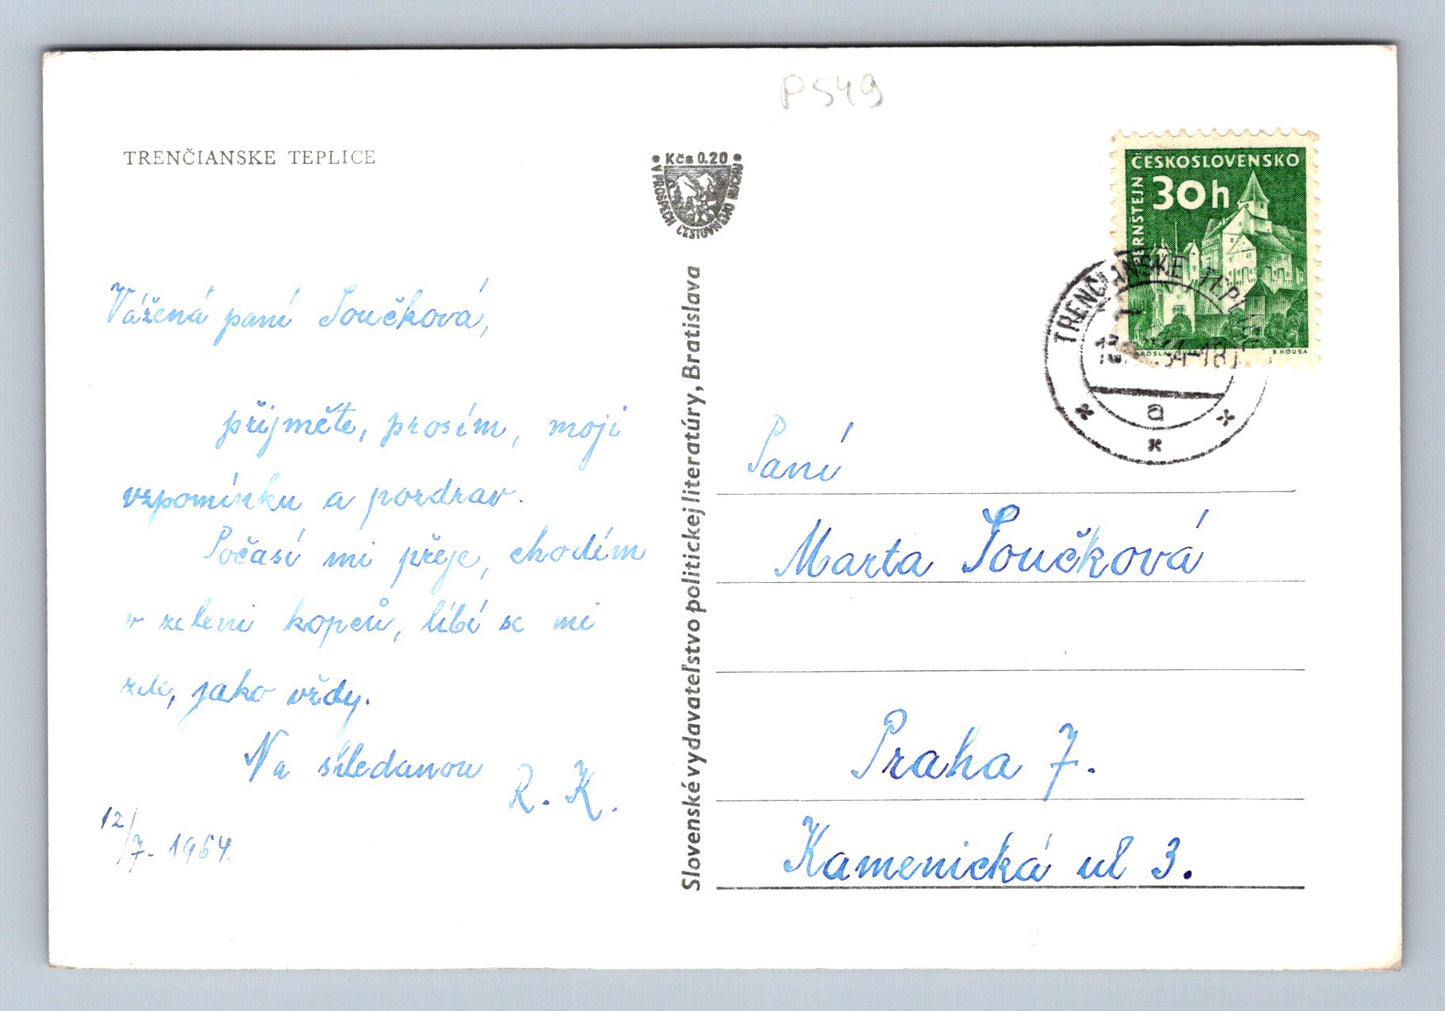 P549
TRENČIANSKE TEPLICE
Kčs 0.20
V PROSPECH CESTOVNÉHO RUCHU
ČESKOSLOVENSKO
30h
PERNŠTEJN
B. HOUSA
TRENČIANSKE TEPLICE
-18
a
Vážená paní Součková,
přijměte, prosím, moji
vzpomínku a pozdrav.
Počasí mi přeje, chodím
v zeleni kopců, líbí se mi
zde, jako vždy.
Na shledanou
R. K.
12/7. 1964.
Slovenské vydavateľstvo politickej literatúry, Bratislava
Paní
Marta Součková
Praha 7.
Kamenická ul 3.